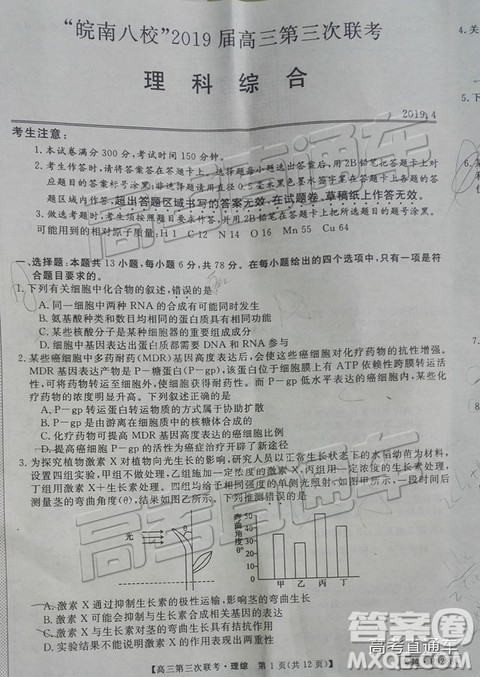 “皖南八校”2019届高三第三次联考
理 科 综 合
2019.4
考生注意：
1.本试卷满分300分，考试时间150分钟。
2.考生作答时，请将答案答在答题卡上。选择题每小题选出答案后，用2B铅笔把答题卡上对
应题目的答案标号涂黑；非选择题请用直径0.5毫米黑色墨水签字笔在答题卡上各题的答
题区域内作答，超出答题区域书写的答案无效，在试题卷、草稿纸上作答无效。
3.做选考题时，考生须按照题目要求作答，并用2B铅笔在答题卡上把所选题目的题号涂黑。
可能用到的相对原子质量：H 1 C 12 N 14 O 16 Mn 55 Cu 64
一、选择题：本题共13小题，每小题6分，共78分。在每小题给出的四个选项中，只有一项是符
合题目要求的。
1.下列有关细胞中化合物的叙述，错误的是
A.同一细胞中两种RNA的合成有可能同时发生
B.氨基酸种类和数目均相同的蛋白质可能有不同的功能
C.某些核酸分子中可能发生碱基互补配对
D.细胞中大分子出细胞都需要蛋白质或RNA参与
2.某些癌细胞中多药耐药(MDR)基因高度表达后，会使这些癌细胞对化疗药物的抗性增强。
MDR基因表达产物是P－gp(P－糖蛋白)，该蛋白质位于细胞膜上有ATP依赖性跨膜转运活
性，可将化疗药物转运至细胞外，使细胞获得耐药性。而P－gp低水平表达的癌细胞内，化疗
药物的浓度明显升高。下列叙述正确的是
A.P－gp转运蛋白转运物质的方式属于协助扩散
B.P－gp是由游离在细胞质中的核糖体合成的
C.化疗药物可提高MDR基因高度表达的癌细胞比例
D.提高P－gp的活性为癌症治疗开辟了新途径
3.为探究植物激素X对植物向光生长的影响，研究人员以正常生长状态下的水稻幼苗为材料，
设置四组实验，甲组不做处理，乙组施加一定浓度的激素X，丙组用一定浓度的生长素处理，
丁组用激素X＋生长素处理。四组均给予相同强度的单侧光照射如图甲所示，一段时间后
测量茎的弯曲角度(θ)，结果如图乙所示。下列推测错误的是
光
茎的弯曲角度
θ
甲 乙 丙 丁
A.激素X通过抑制生长素的极性运输，影响茎的弯曲生长
B.激素X可能会影响与生长素合成相关基因的表达
C.激素X可能与生长素存在协同关系
D.激素X不能完全抑制生长素的作用
【高三第三次联考·理综 第1页(共12页)】
高考直通车
答案圈
MXQE.COM